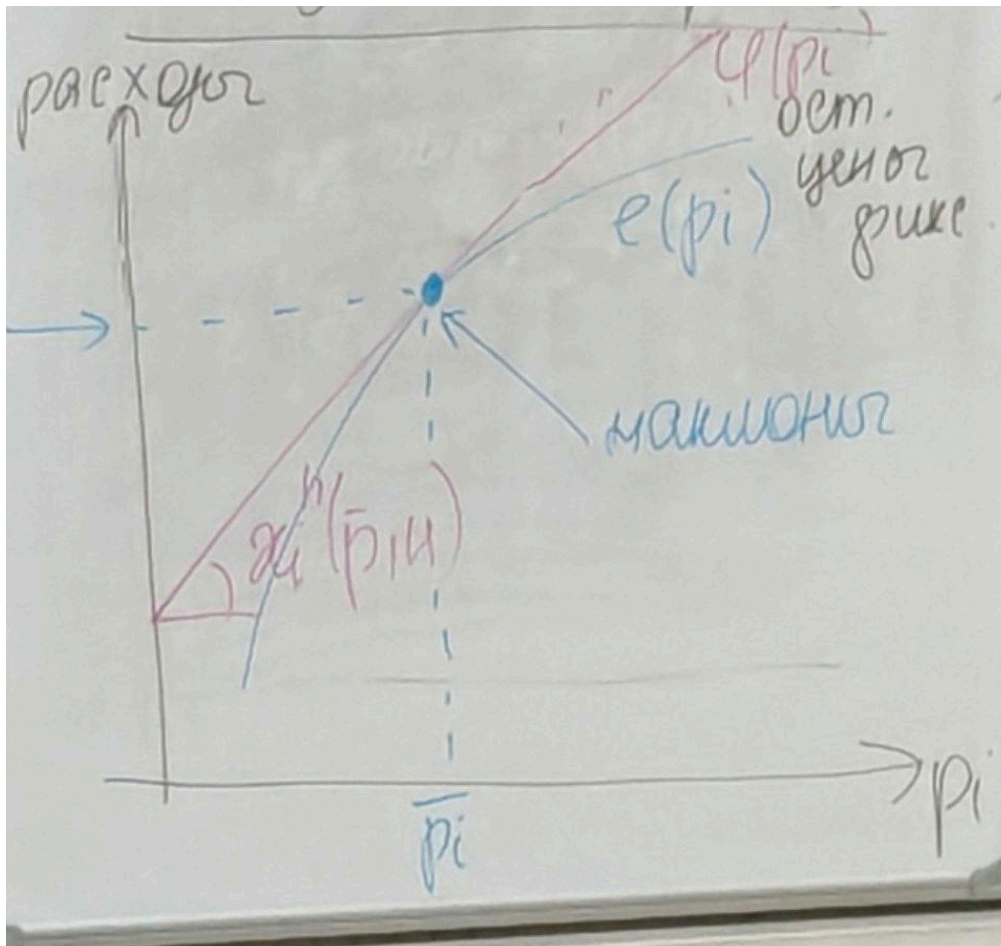 расходы
φ(pi
ост.
цены
фикс
e(pi)
xᵢʰ(p̄,u)
p̄i
pi